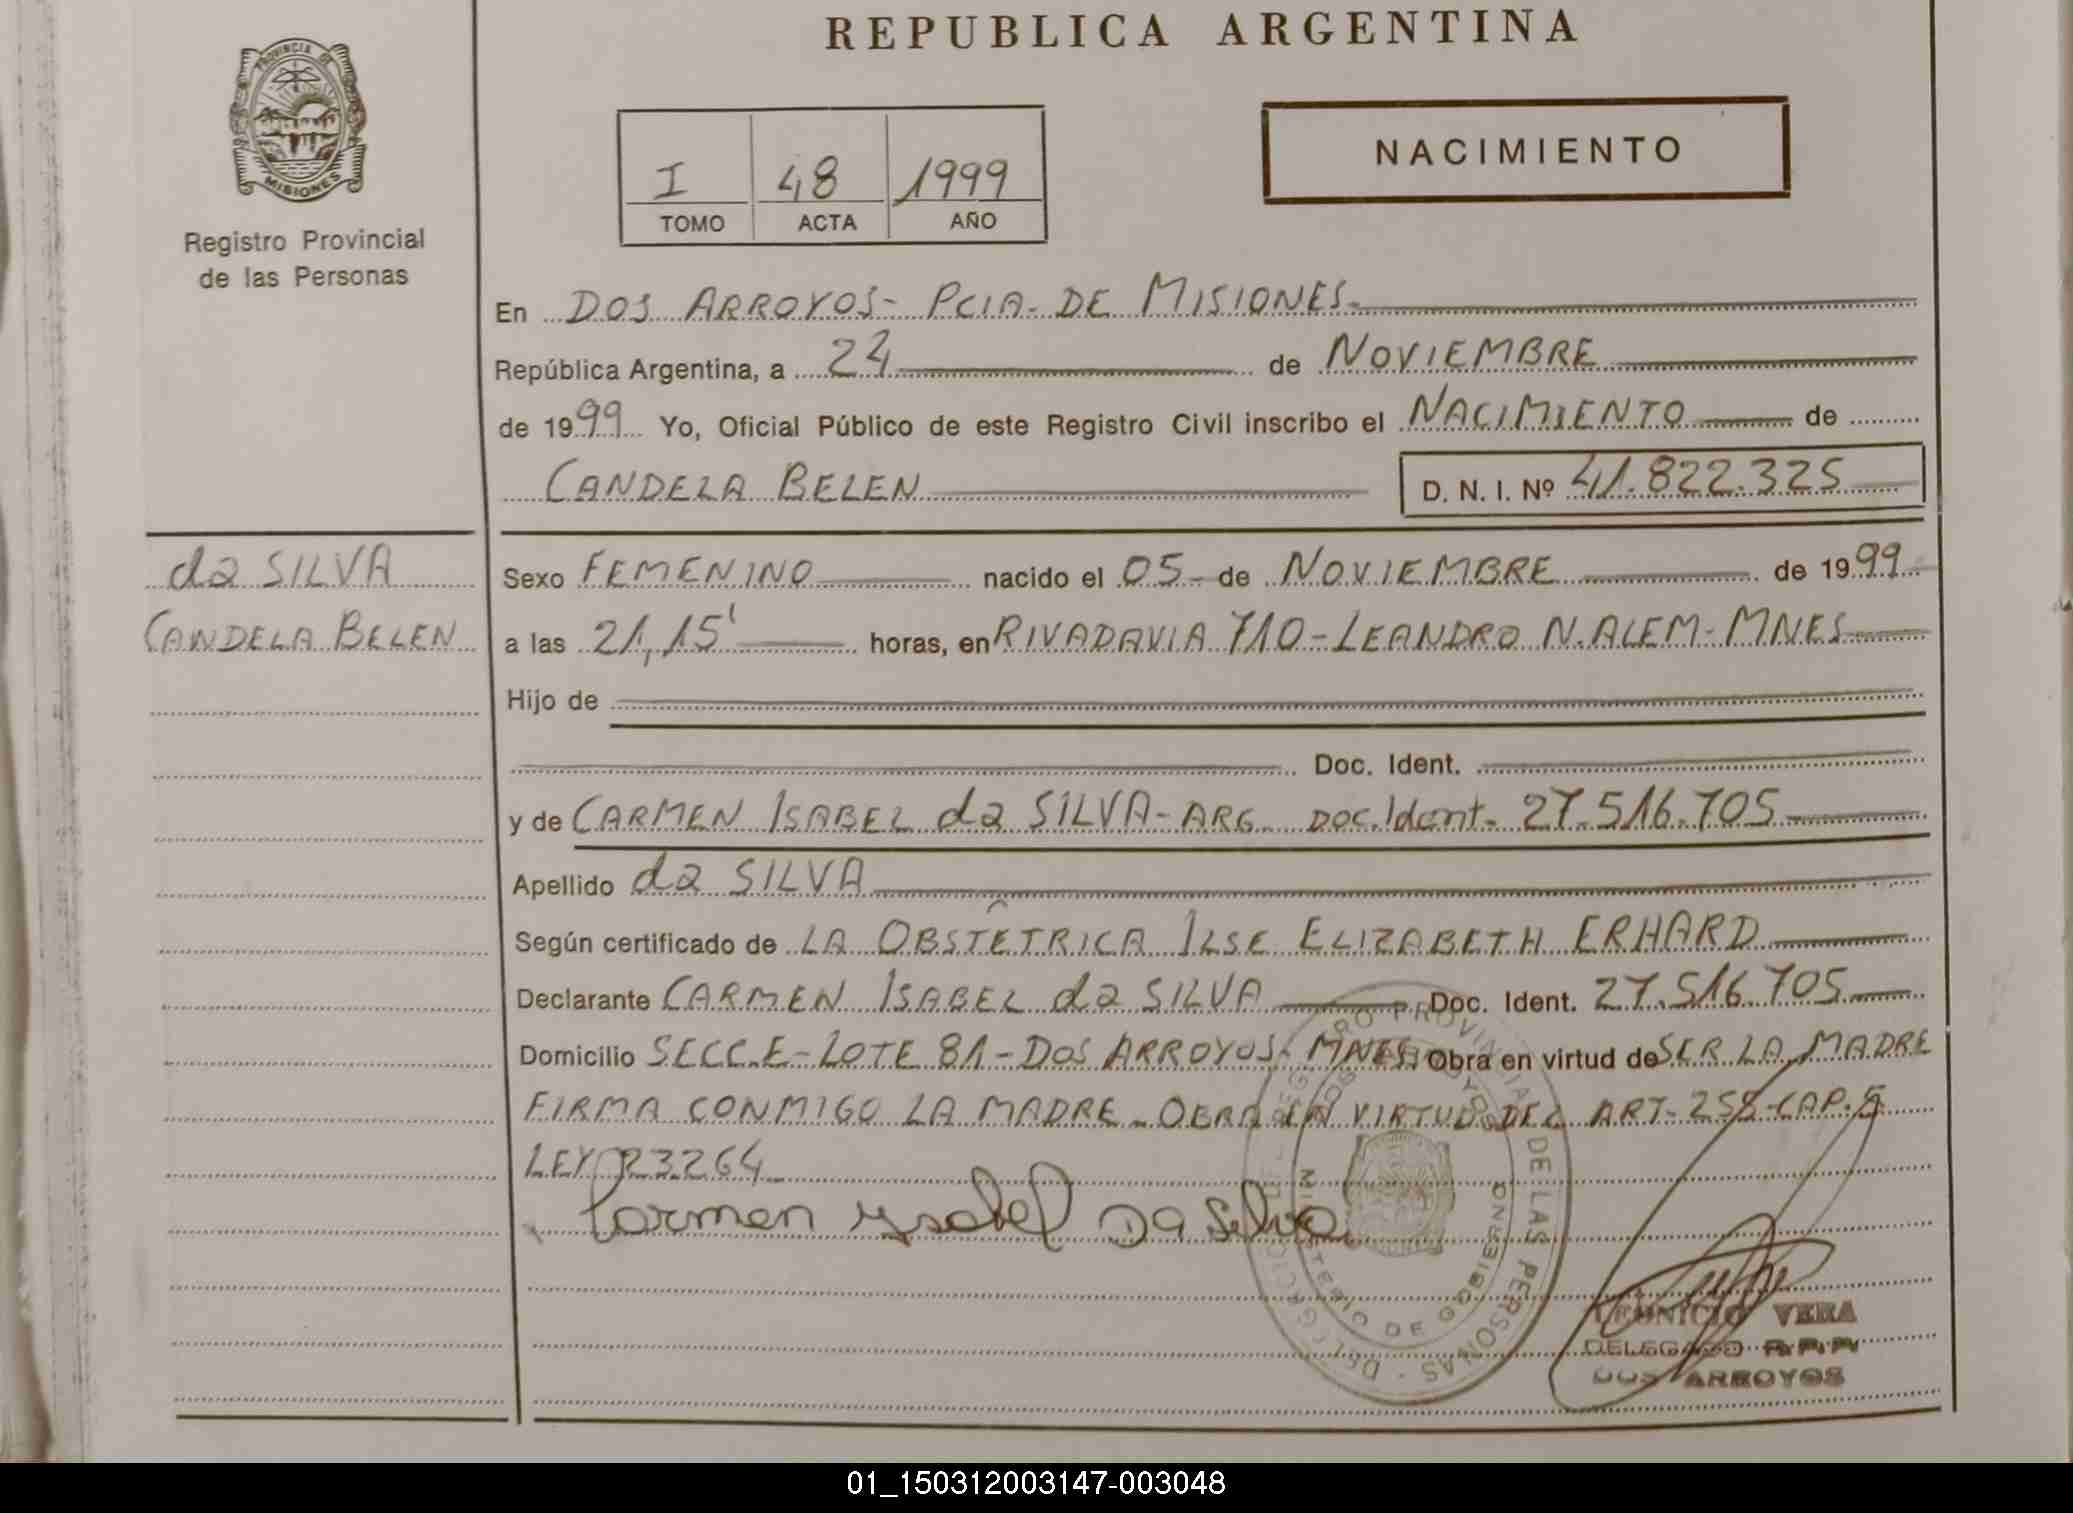 REPUBLICA ARGENTINA
PROVINCIA DE
MISIONES
Registro Provincial
de las Personas
I 48 1999
TOMO ACTA AÑO
NACIMIENTO
En DOS ARROYOS- PCIA- DE MISIONES-
República Argentina, a 24 de NOVIEMBRE
de 1999 Yo, Oficial Público de este Registro Civil inscribo el NACIMIENTO de
CANDELA BELEN D. N. I. Nº 41.822.325
da SILVA
CANDELA BELEN
Sexo FEMENINO nacido el 05- de NOVIEMBRE de 1999
a las 21,15' horas, en RIVADAVIA 710-LEANDRO N.ALEM-MNES
Hijo de
Doc. Ident.
y de CARMEN ISABEL da SILVA- ARG- DOC.Ident- 27.516.705
Apellido da SILVA
Según certificado de LA OBSTÊTRICA ILSE ELIZABETH ERHARD
Declarante CARMEN ISABEL da SILVA Doc. Ident. 27.516.705
Domicilio SECC.E-LOTE 81-DOS ARROYOS- MNES- Obra en virtud de SER LA MADRE
FIRMA CONMIGO LA MADRE- OBRA EN VIRTUD DEL ART-255-CAP.5
LEY 23264
Carmen Ysabel Da Silva
REGISTRO PROVINCIAL DE LAS PERSONAS - DELEGACION
DOS ARROYOS
MINISTERIO DE GOBIERNO
LEUNICIO VERA
DELEGADO R.P.P.
DOS ARROYOS
01_150312003147-003048